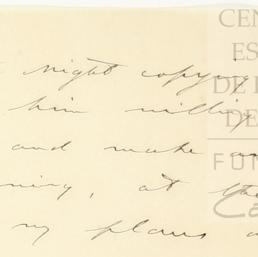 night copying
him willing
and make
ning, at the
my plans
CEN
ES
DE
DE
FUN
Ca